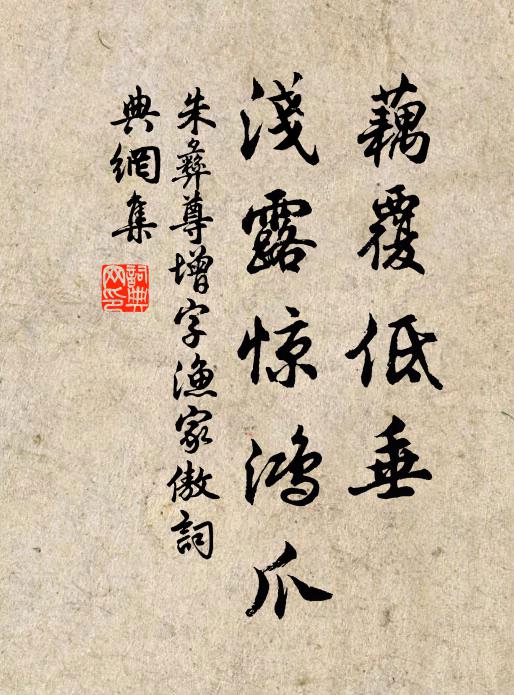 藕覆低垂
淺露惊鸿爪
朱彝尊增字渔家傲詞
典網集
詞典網印